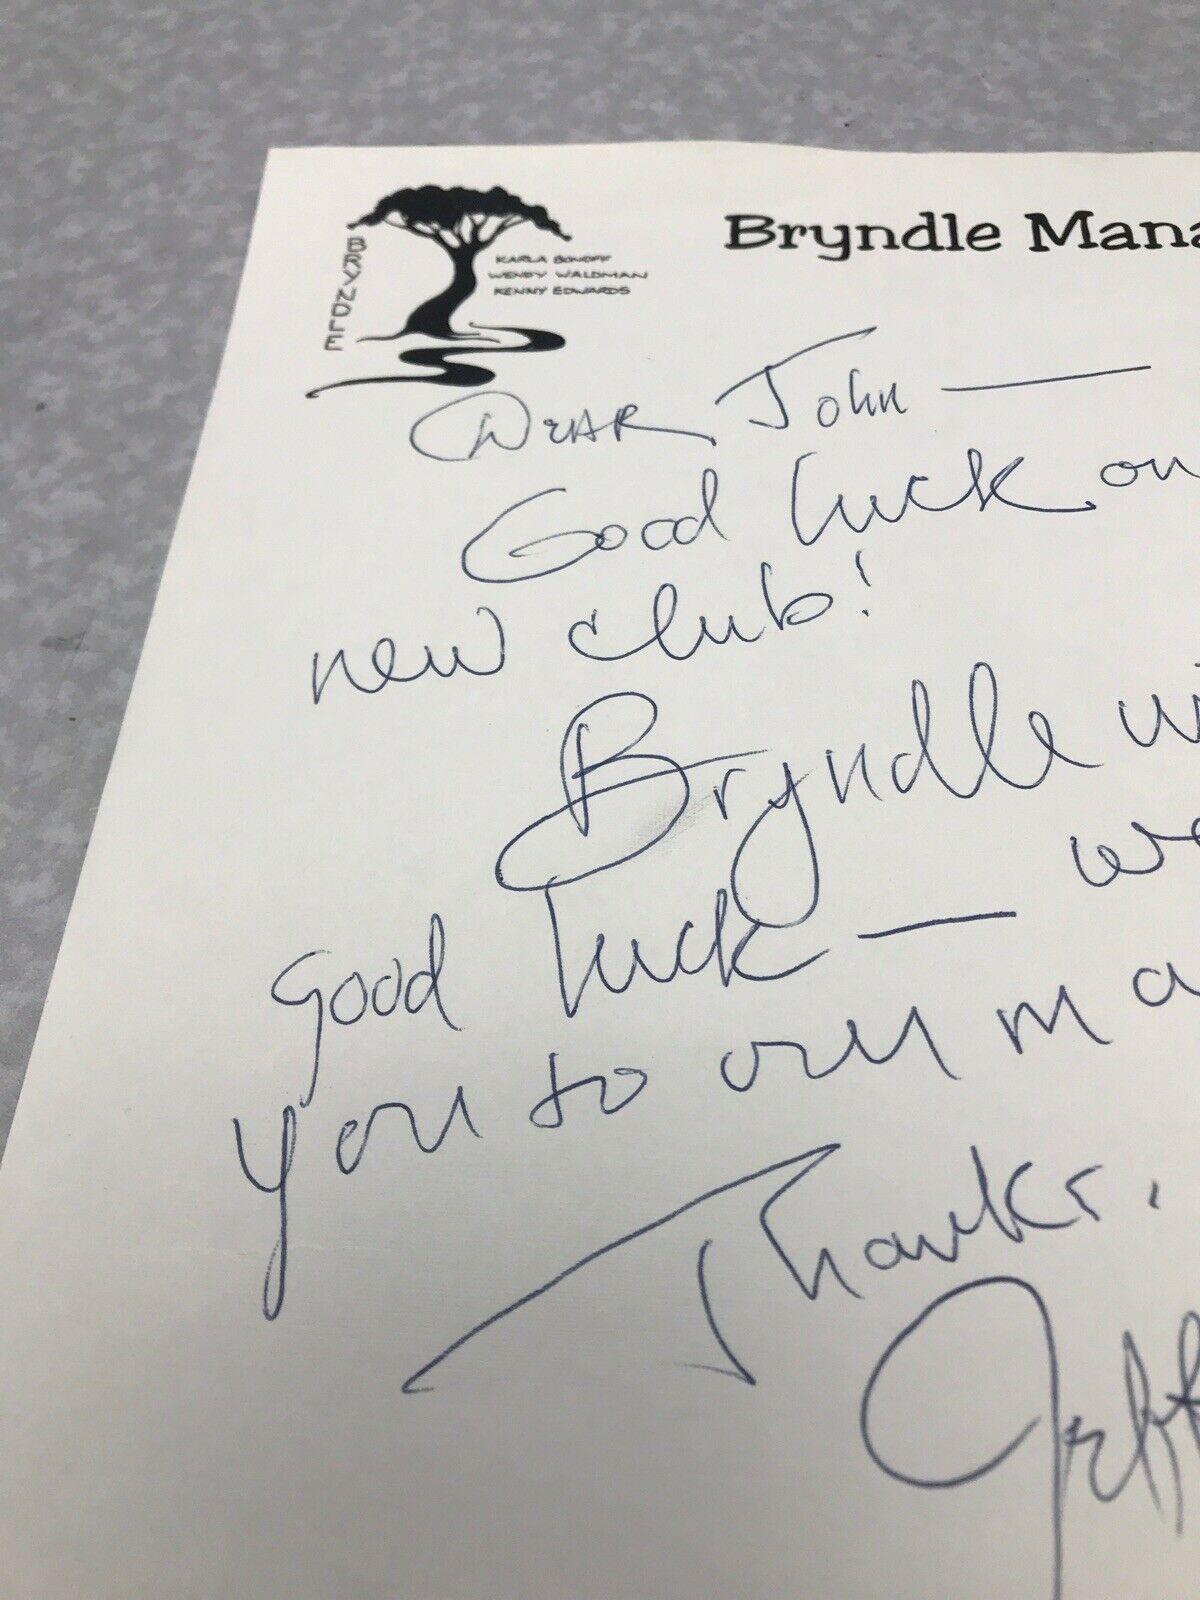 BRYNDLE
KARLA BONOFF
WENDY WALDMAN
KENNY EDWARDS
Bryndle Mana
Dear John —
Good luck on
new club!
Bryndle wi
good luck — we
you to our ma
Thanks.
Jeff